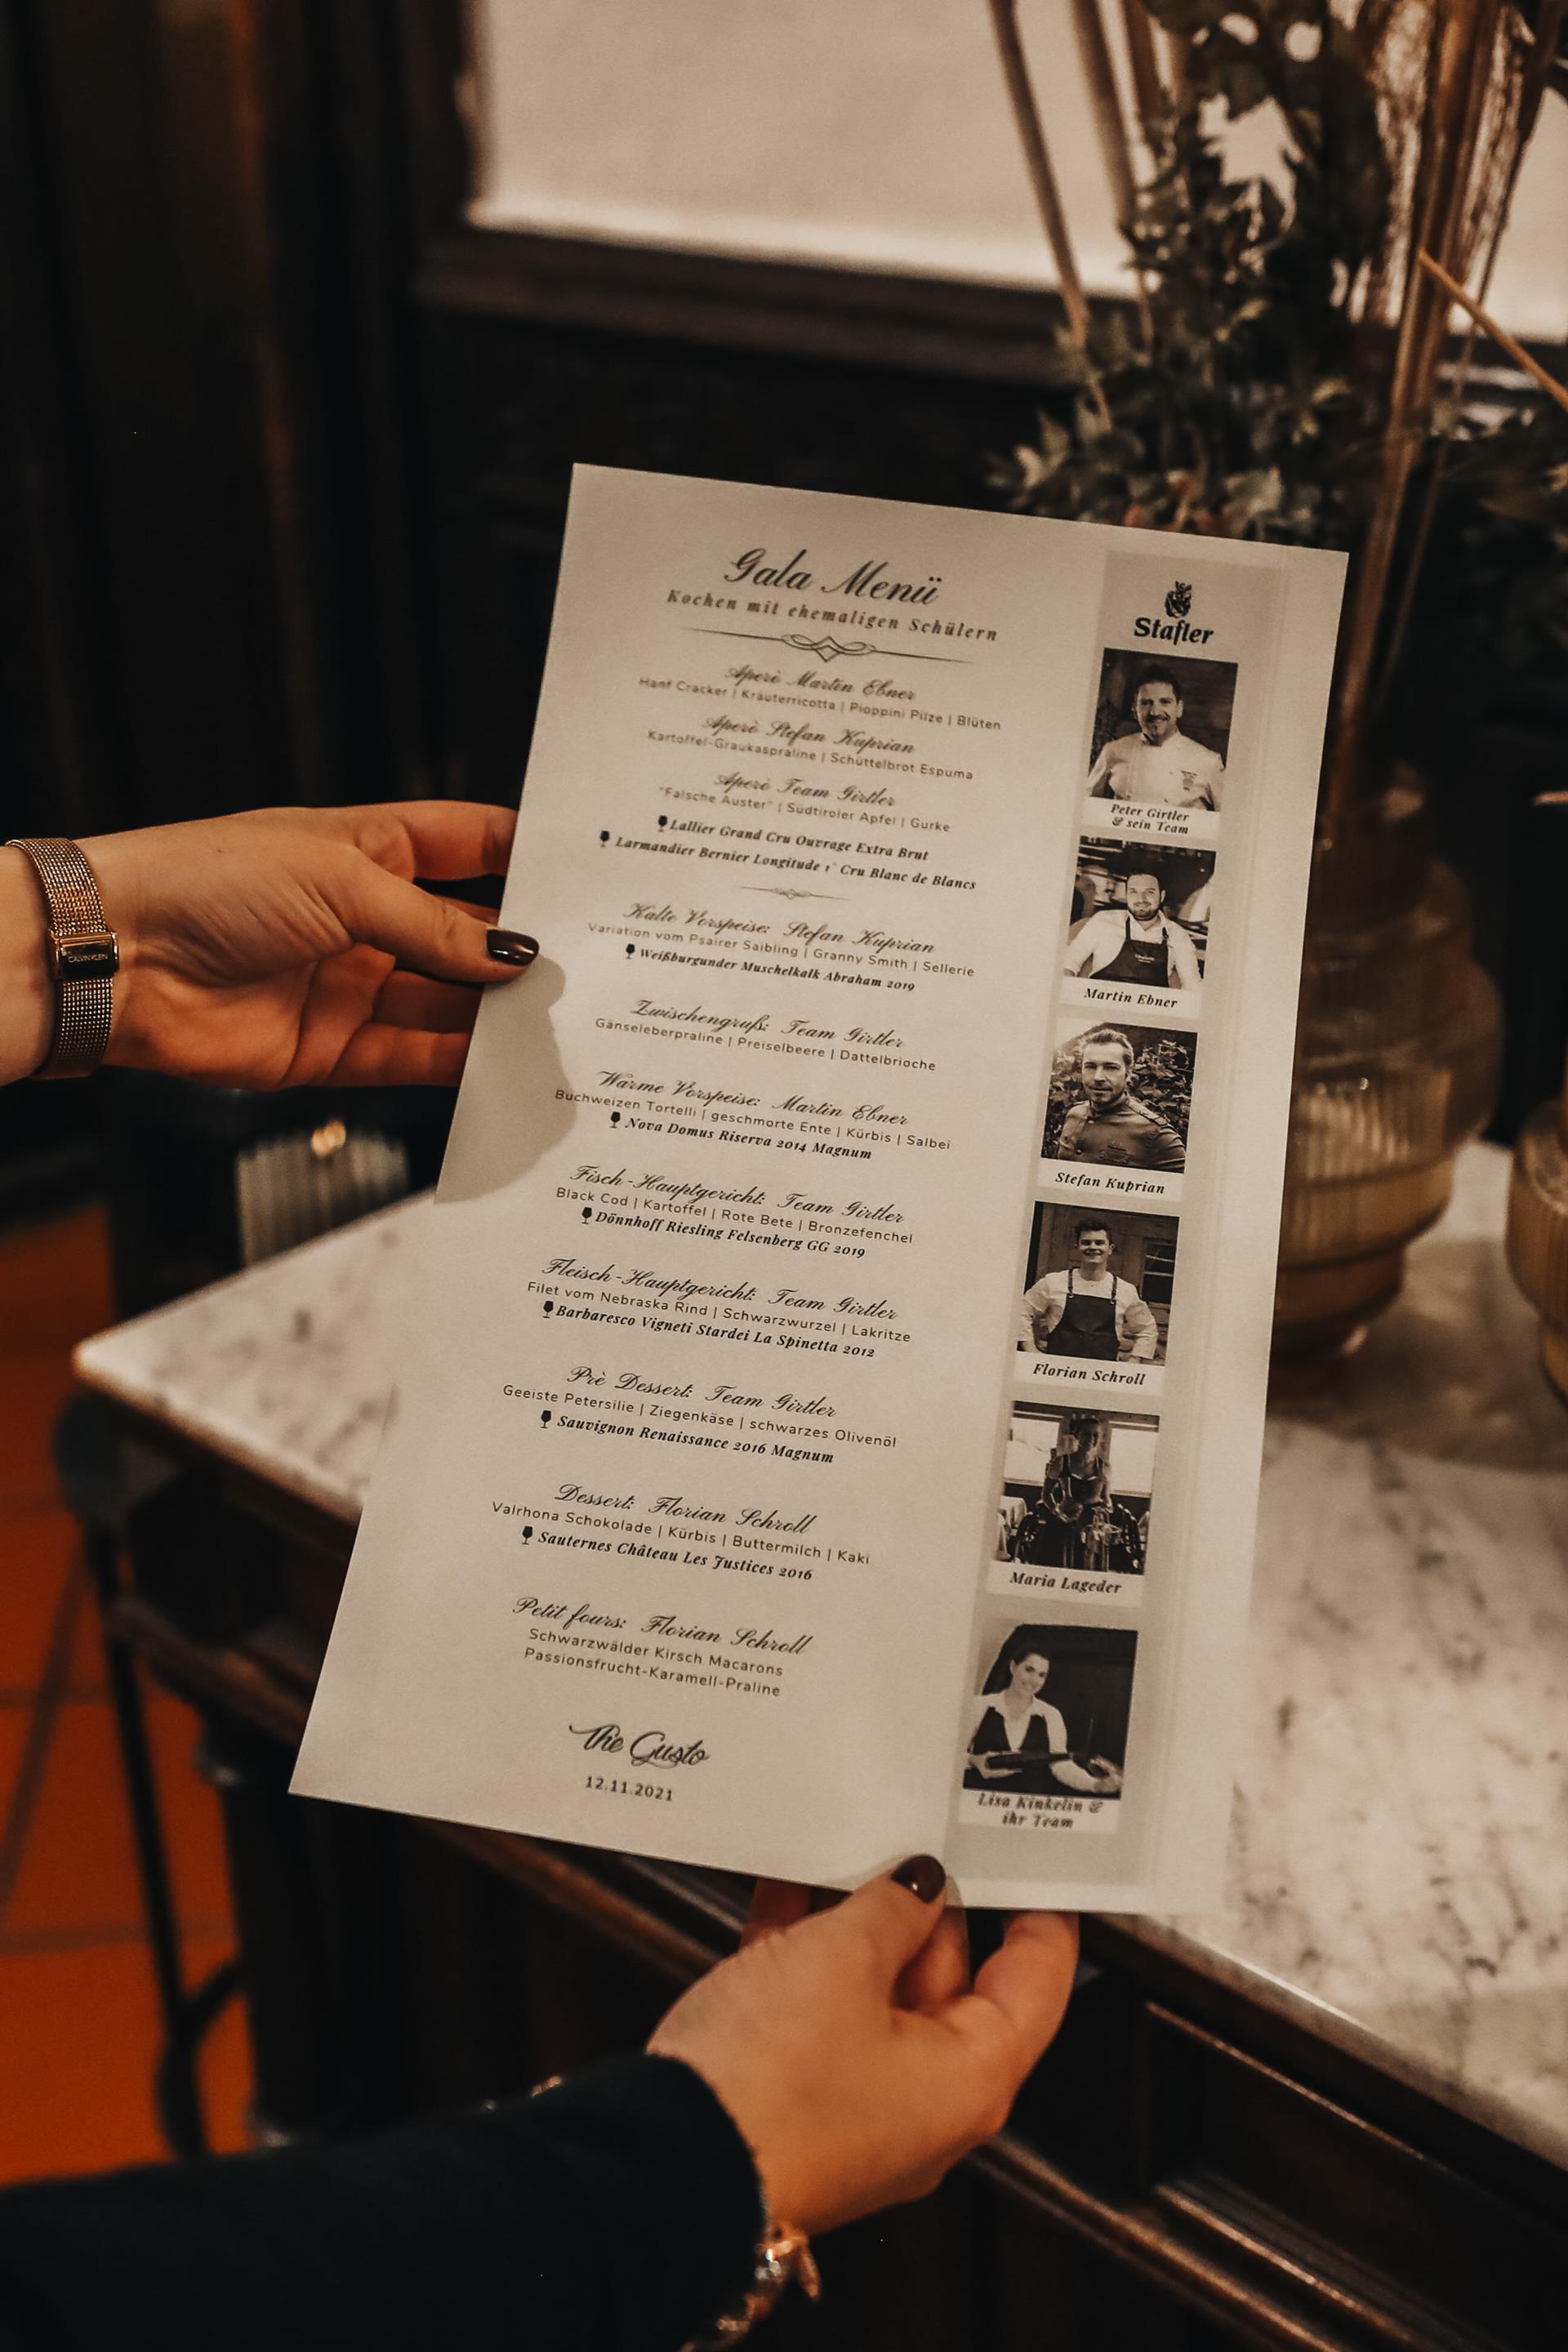 Gala Menü
Kochen mit ehemaligen Schülern
Aperò Martin Ebner
Hanf Cracker | Kräuterricotta | Pioppini Pilze | Blüten
Aperò Stefan Kuprian
Kartoffel-Graukaspraline | Schüttelbrot Espuma
Aperò Team Girtler
"Falsche Auster" | Südtiroler Apfel | Gurke
Lallier Grand Cru Ouvrage Extra Brut
Larmandier Bernier Longitude 1° Cru Blanc de Blancs
Kalte Vorspeise: Stefan Kuprian
Variation vom Psairer Saibling | Granny Smith | Sellerie
Weißburgunder Muschelkalk Abraham 2019
Zwischengruß: Team Girtler
Gänseleberpraline | Preiselbeere | Dattelbrioche
Warme Vorspeise: Martin Ebner
Buchweizen Tortelli | geschmorte Ente | Kürbis | Salbei
Nova Domus Riserva 2014 Magnum
Fisch-Hauptgericht: Team Girtler
Black Cod | Kartoffel | Rote Bete | Bronzefenchel
Dönnhoff Riesling Felsenberg GG 2019
Fleisch-Hauptgericht: Team Girtler
Filet vom Nebraska Rind | Schwarzwurzel | Lakritze
Barbaresco Vigneti Stardei La Spinetta 2012
Prè Dessert: Team Girtler
Geeiste Petersilie | Ziegenkäse | schwarzes Olivenöl
Sauvignon Renaissance 2016 Magnum
Dessert: Florian Schroll
Valrhona Schokolade | Kürbis | Buttermilch | Kaki
Sauternes Château Les Justices 2016
Petit fours: Florian Schroll
Schwarzwälder Kirsch Macarons
Passionsfrucht-Karamell-Praline
The Gusto
12.11.2021
Stafler
Peter Girtler
& sein Team
Martin Ebner
Stefan Kuprian
Florian Schroll
Maria Lageder
Lisa Kinkelin &
ihr Team
CALVIN KLEIN